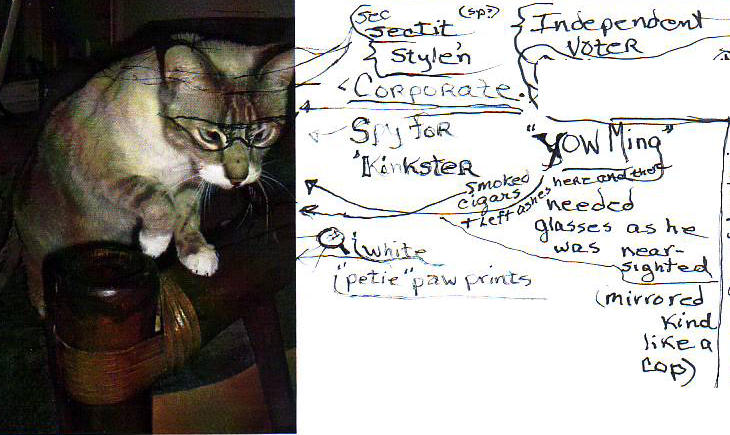 Sec
Seatit
(sp?)
Style'n
Corporate.
Spy for
"Kinkster
white
"petie" paw prints
Independent
Voter
"Yow Ming"
smoked
cigars
+ Left ashes here and there
needed
glasses as he
was near-
sighted
(mirrored
kind
like a
cop)